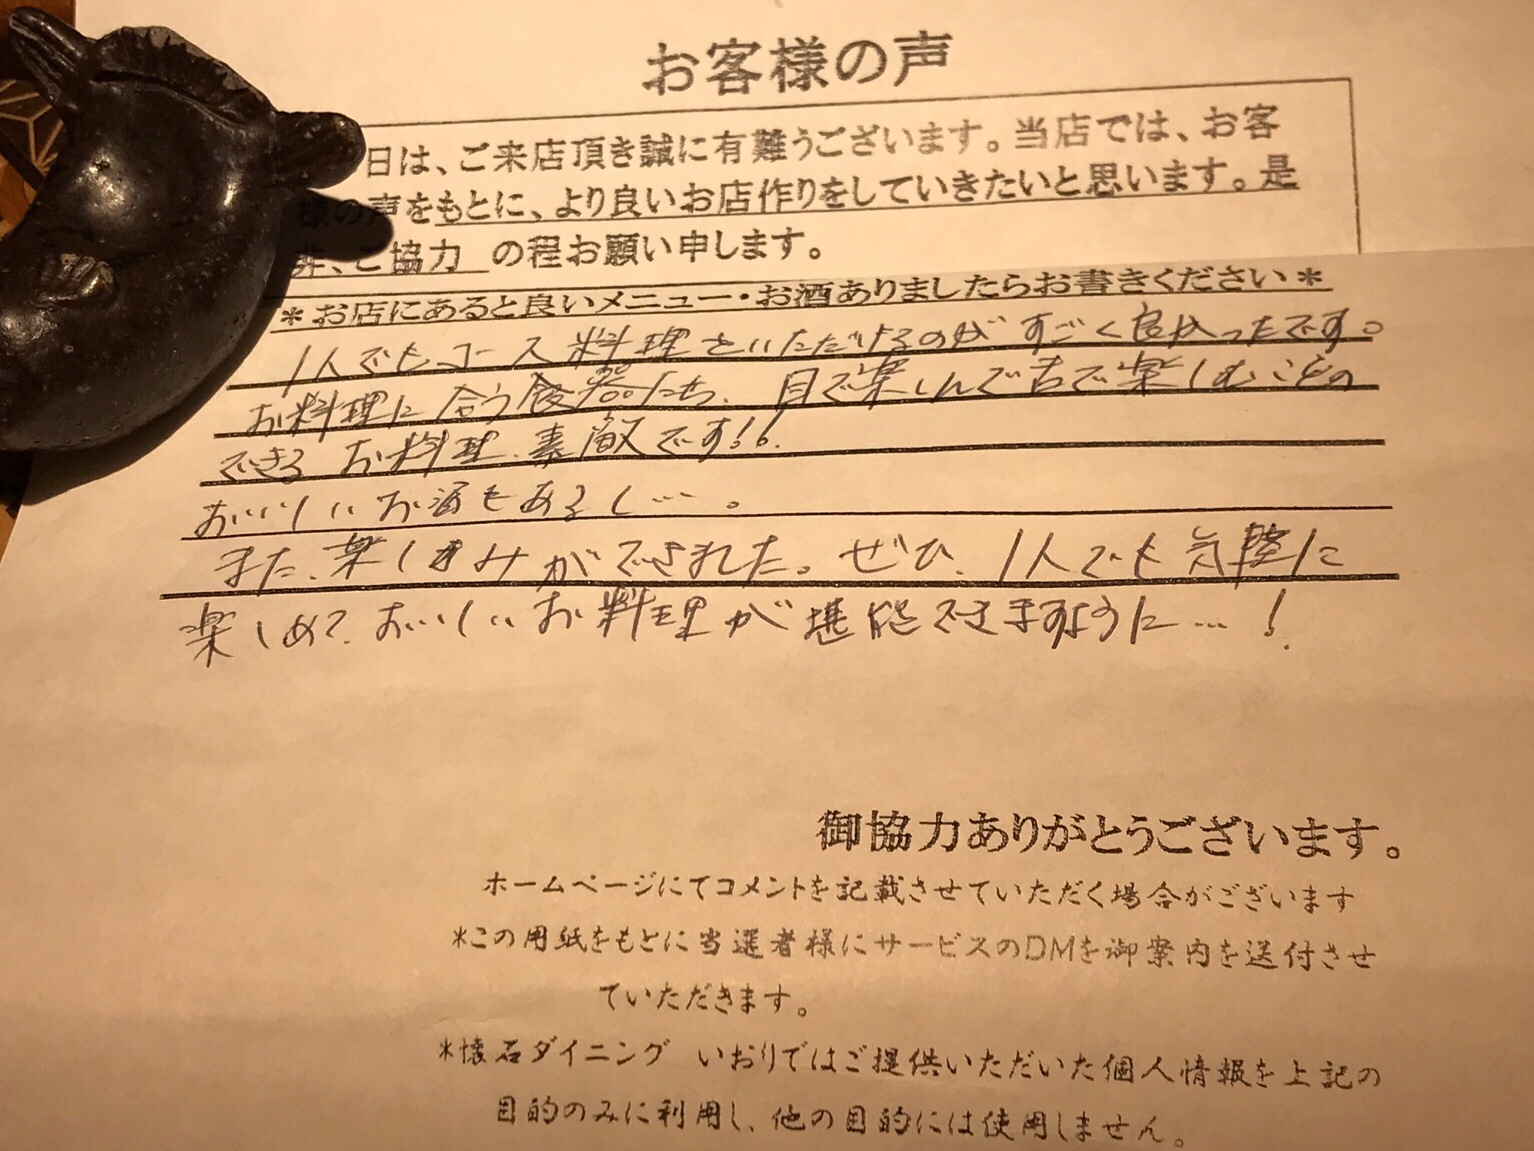 お客様の声
日は、ご来店頂き誠に有難うございます。当店では、お客
様の声をもとに、より良いお店作りをしていきたいと思います。是
非、ご協力 の程お願い申します。
＊お店にあると良いメニュー・お酒ありましたらお書きください＊
1人でもコース料理をいただけるのがすごく良かったです。
お料理に合う食器たち、目で楽しんで舌で楽しむことの
できるお料理、素敵です!!
おいしいお酒もあるし…。
また、楽しみができました。ぜひ、1人でも気軽に
楽しめて、おいしいお料理が堪能できますように…!
御協力ありがとうございます。
ホームページにてコメントを記載させていただく場合がございます
＊この用紙をもとに当選者様にサービスのDMを御案内を送付させ
ていただきます。
＊懐石ダイニング いおりではご提供いただいた個人情報を上記の
目的のみに利用し、他の目的には使用しません。